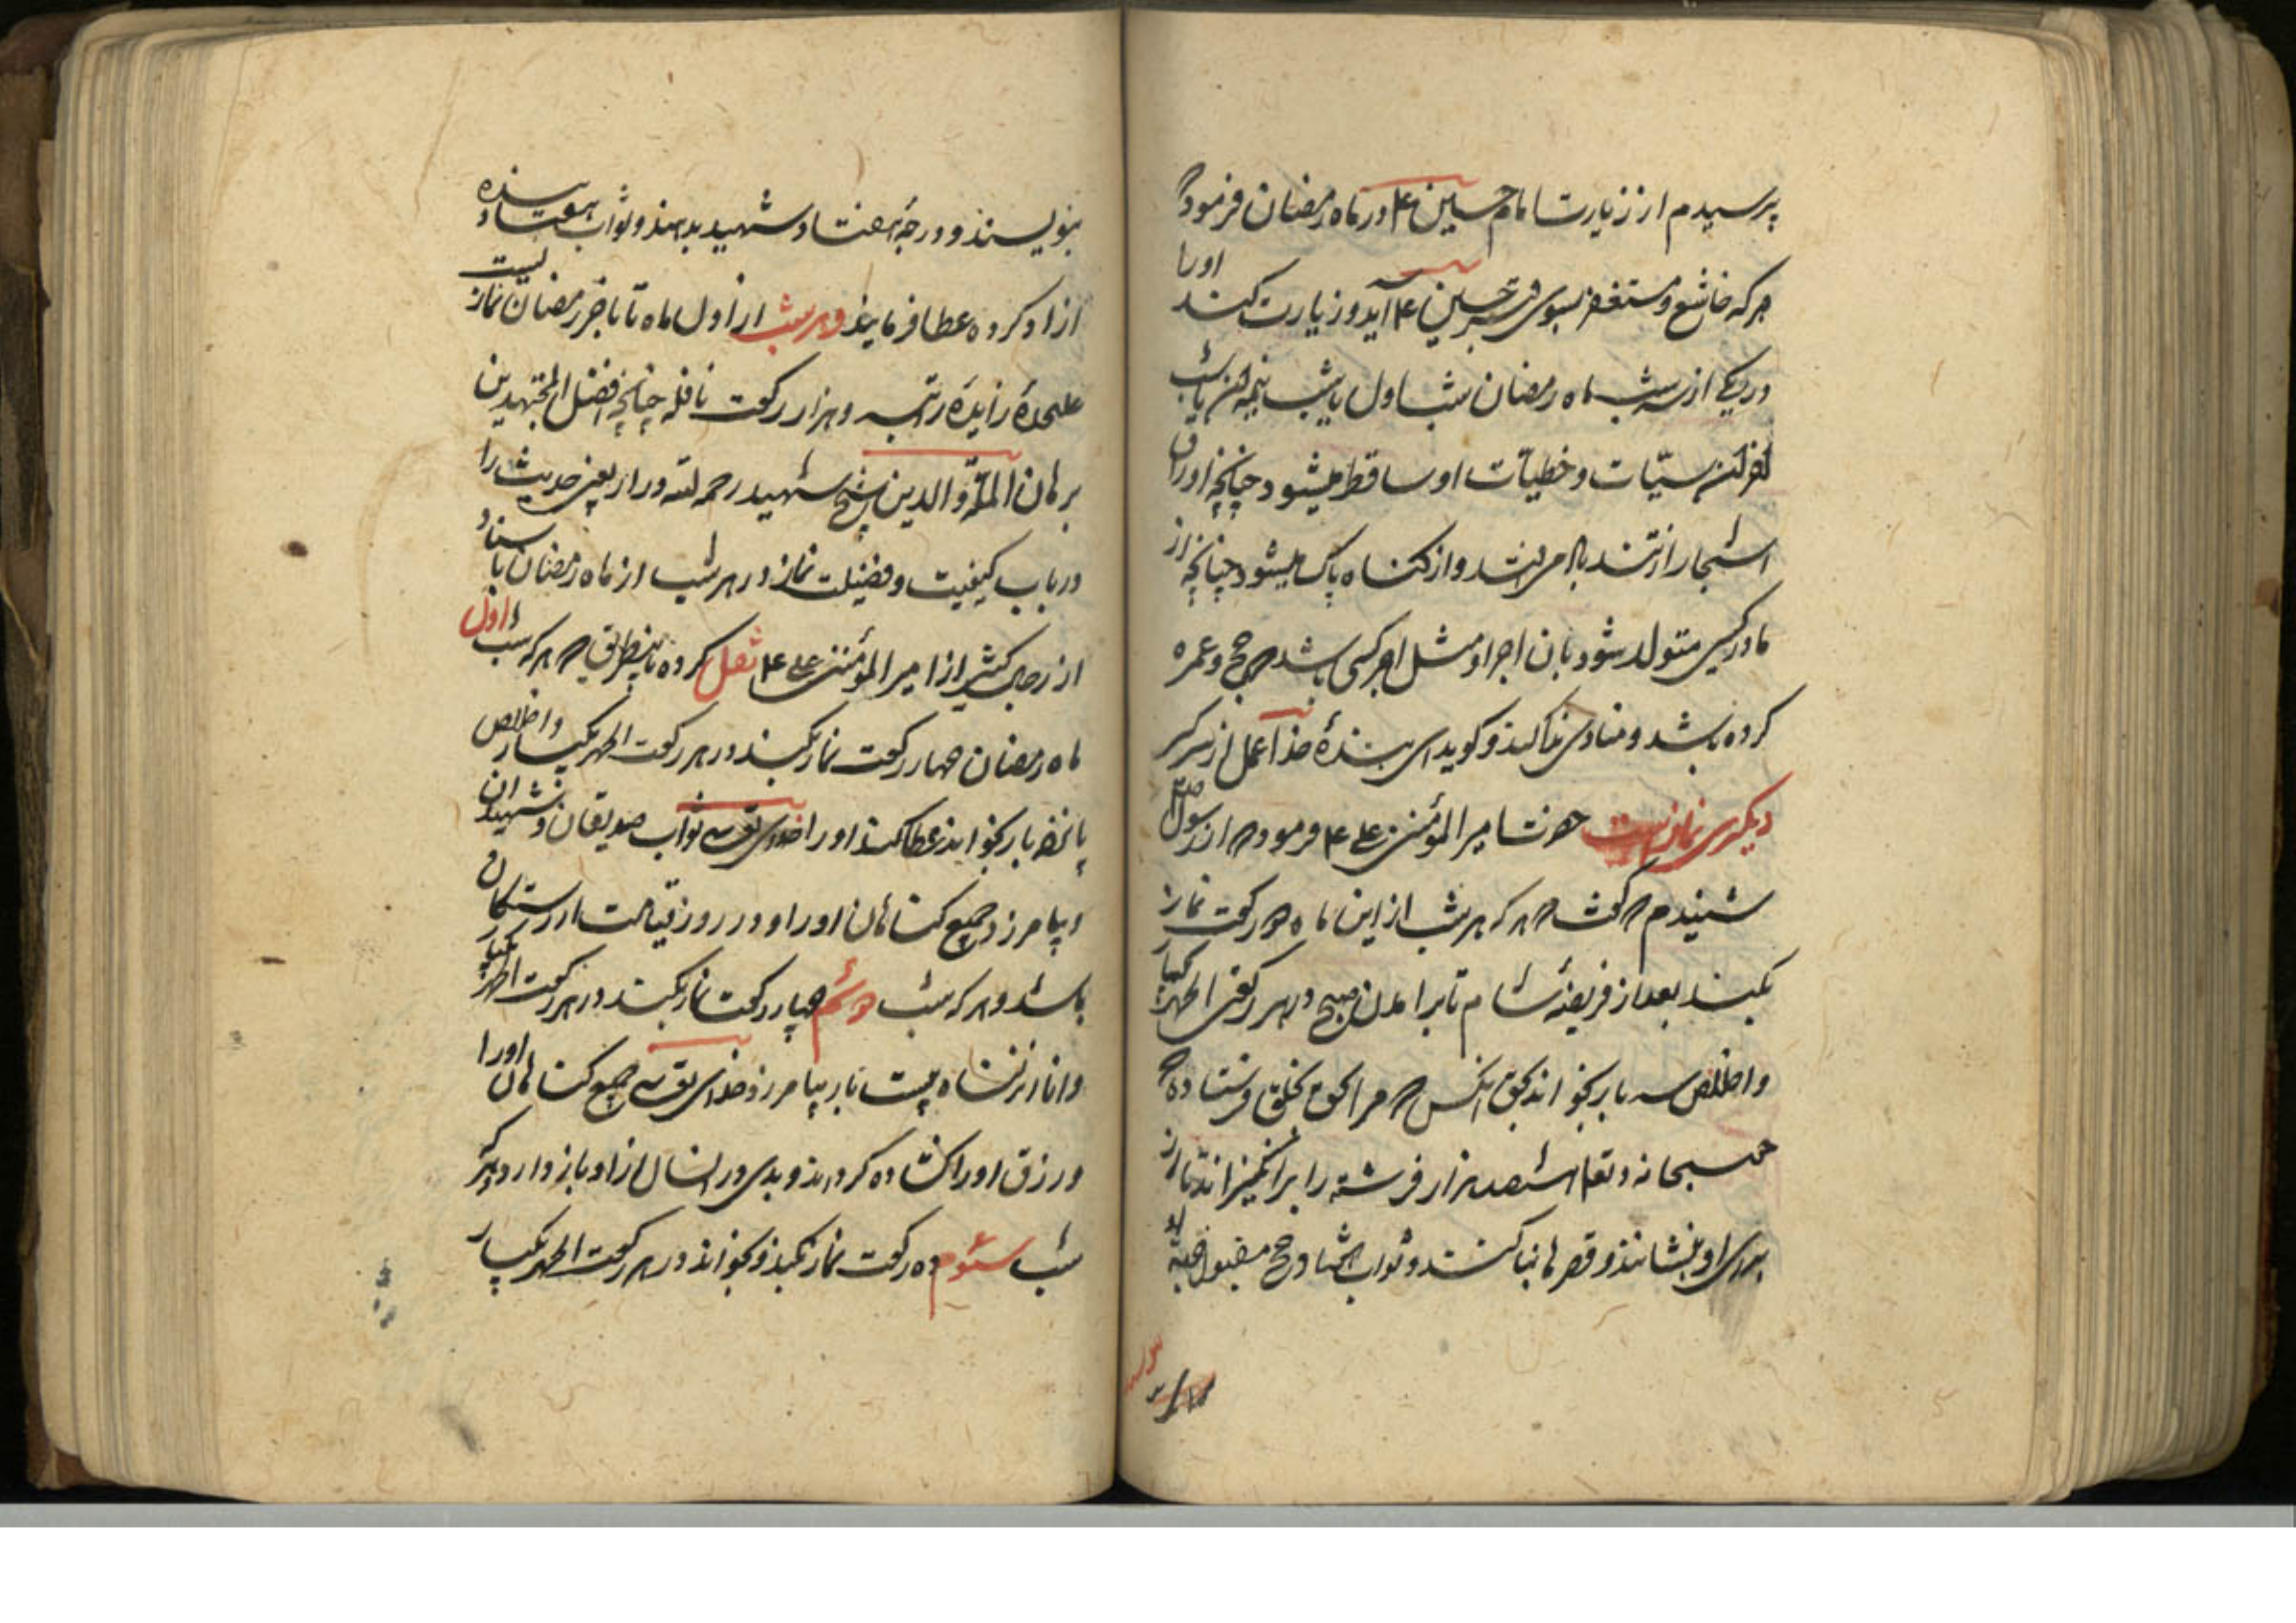 پرسیدم از زیارت امام حسین ع در ماه رمضان فرمود که
هر که خاشع و مستغفر بسوی قبر حسین ع آید و زیارت کند او را
در یکی از سه شب ماه رمضان شب اول یا شب نیمه آن یا شب
آخر آن سیّات و خطیآت او ساقط میشود چنانچه اوراق
اشجار از تند باد میریزد و از کناه پاک میشود چنانچه از
مادر کسی متولد شود بان اجر او مثل اجر کسی باشد که حج و عمره
کرده باشد و منادی ندا کند و کوید ای بندهٔ خدا عمل از سر کیر
دیکری نماز است حضرت امیر المؤمنین علی ع فرموده که از رسول صلعم
شنیدم که کفت که هر که هر شب از این ماه دو رکعت نماز
بکند بعد از فریضهٔ شام تا بر آمدن صبح در هر رکعتی الحمد یکبار
و اخلاص سه بار بخواند بحق آنکس که مرا بحق بخلق فرستاده که
حق سبحانه و تعالی هفتصد هزار فرشته را بر انکیزاند تا از
برای او بنشانند و قصرها بنا کنند و ثواب هفتاد حج مقبول
بنویسند و درجهٔ هفتاد شهید بدهند و ثواب هفتاد بنده
ازاد کرده عطا فرمایند و هر شب از اول ماه تا باخر رمضان نماز
علیحدهٔ زایدهٔ راتبه و هزار رکعت نافله چنانچه افضل المجتهدین
برهان الملّة و الدین شیخ شهید رحمه الله در اربعین حدیث را
در باب کیفیت و فضیلت نماز در هر شب از ماه رمضان باسناد
از رجال کثیر از امیر المؤمنین علی ع نقل کرده باینطریق که هر که شب اول
ماه رمضان چهار رکعت نماز بکند در هر رکعت الحمد یکبار و اخلاص
پانزده بار بخواند عطا کند او را خدای تعالی ثواب صدیقان و شهیدان
و بیامرزد جمیع کناهان او را و در روز قیامت از رستکاران
باشد و هر که شب دوئم چهار رکعت نماز بکند در هر رکعت الحمد یکبار
و انا انزلناه بیست بار بیامرزد خدای تعالی جمیع کناهان او را
و رزق او را کشاده کرداند و بدی در انسال از او باز دارد و هر که
شب سئوم ده رکعت نماز بکند و بخواند در هر رکعت الحمد یکبار